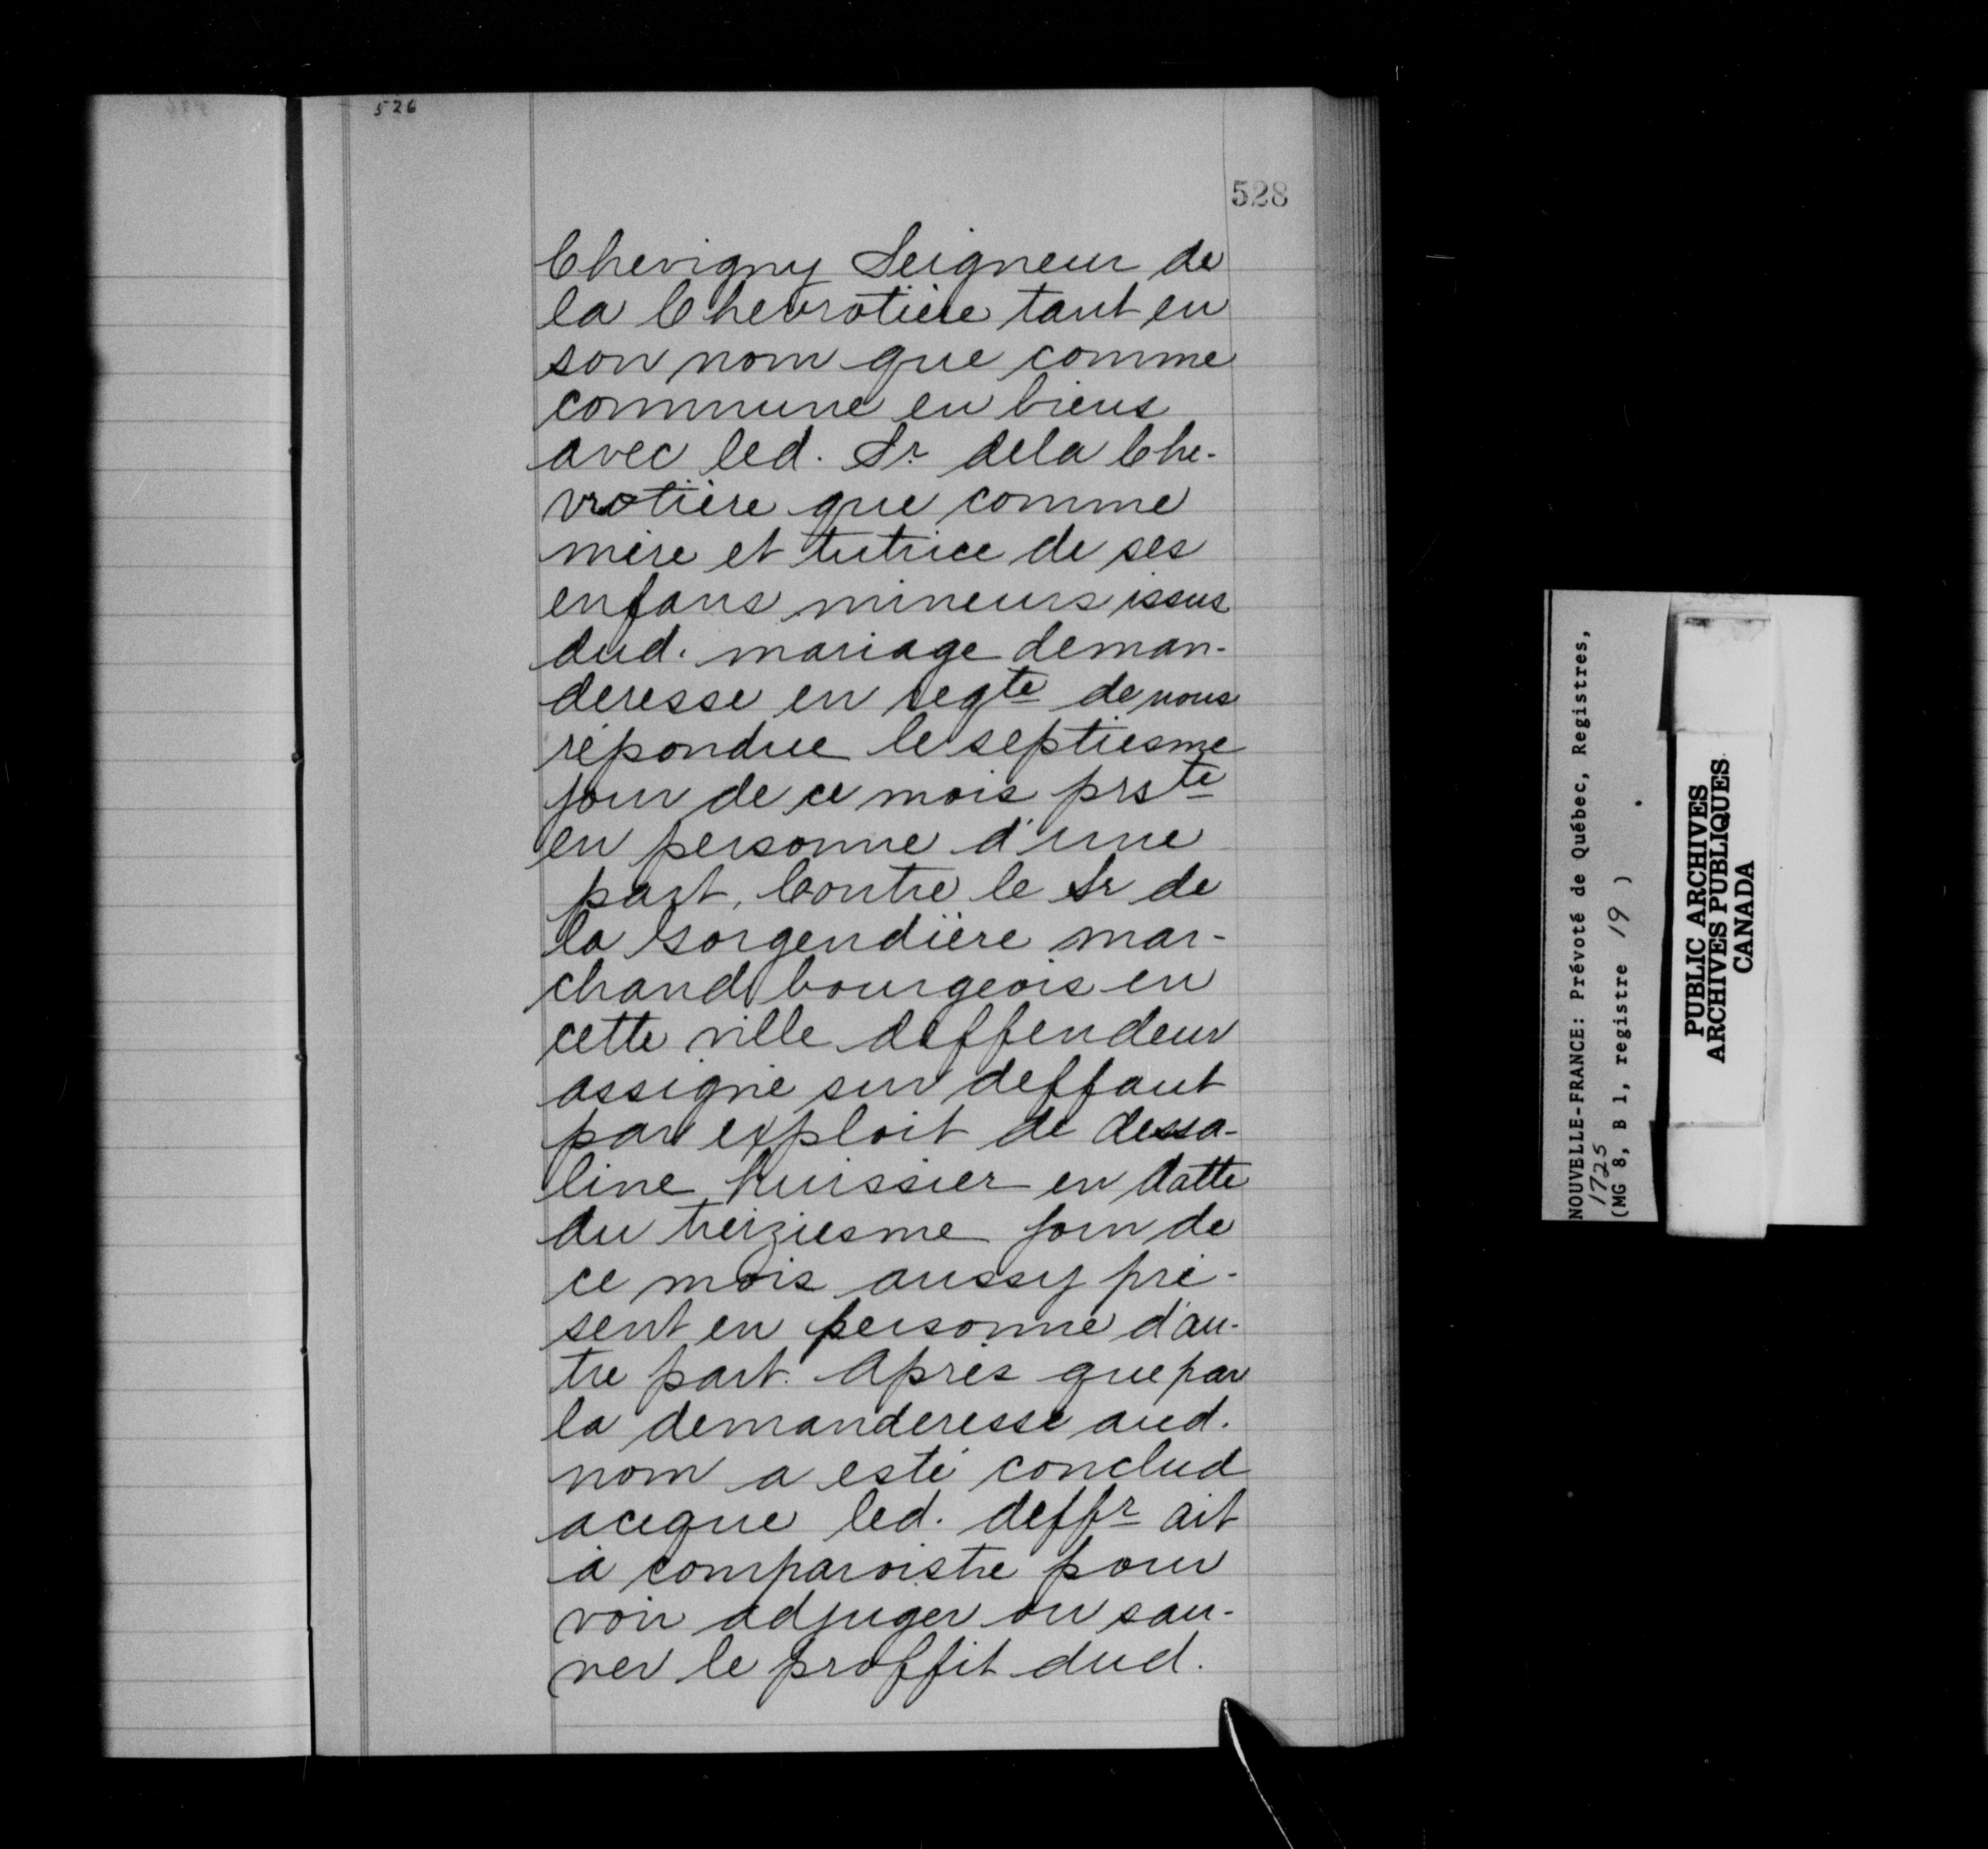 526
528
Chevigny Seigneur de
la Chevrotière tant en
son nom que comme
commune en biens
avec led. Sr. dela Che-
vrotière que comme
mère et tutrice de ses
enfans mineurs issus
dud. mariage deman-
deresse en reqte de nous
répondue le septiesme
jour de ce mois prste
en personne d'une
part, Contre le Sr de
la Gorgendière mar-
chand bourgeois en
cette ville deffendeur
assigné sur deffaut
par exploit de dessa-
line huissier en datte
du treiziesme jour de
ce mois aussy pré-
sent en personne d'au-
tre part. Après que par
la demanderesse aud.
nom a esté conclud
aceque led. deffr ait
à comparoistre pour
voir adjuger ou sau-
ver le proffit dud.
NOUVELLE-FRANCE: Prévoté de Québec, Registres,
1725
(MG 8, B 1, registre 19 )
PUBLIC ARCHIVES
ARCHIVES PUBLIQUES
CANADA